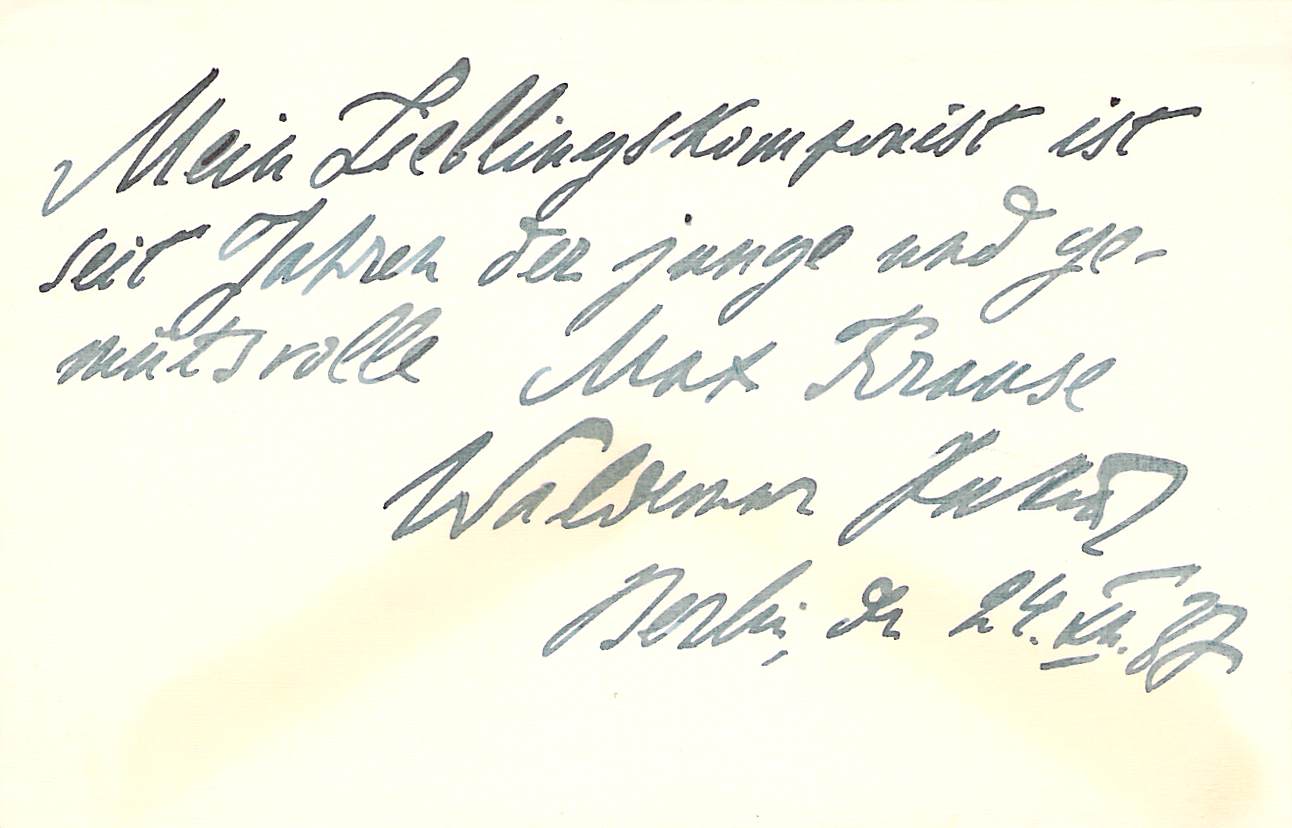 Mein Lieblingskomponist ist
seit Jahren der junge und ge-
mütsvolle Max Krause
Waldemar
Berlin, den 24. XII. 87